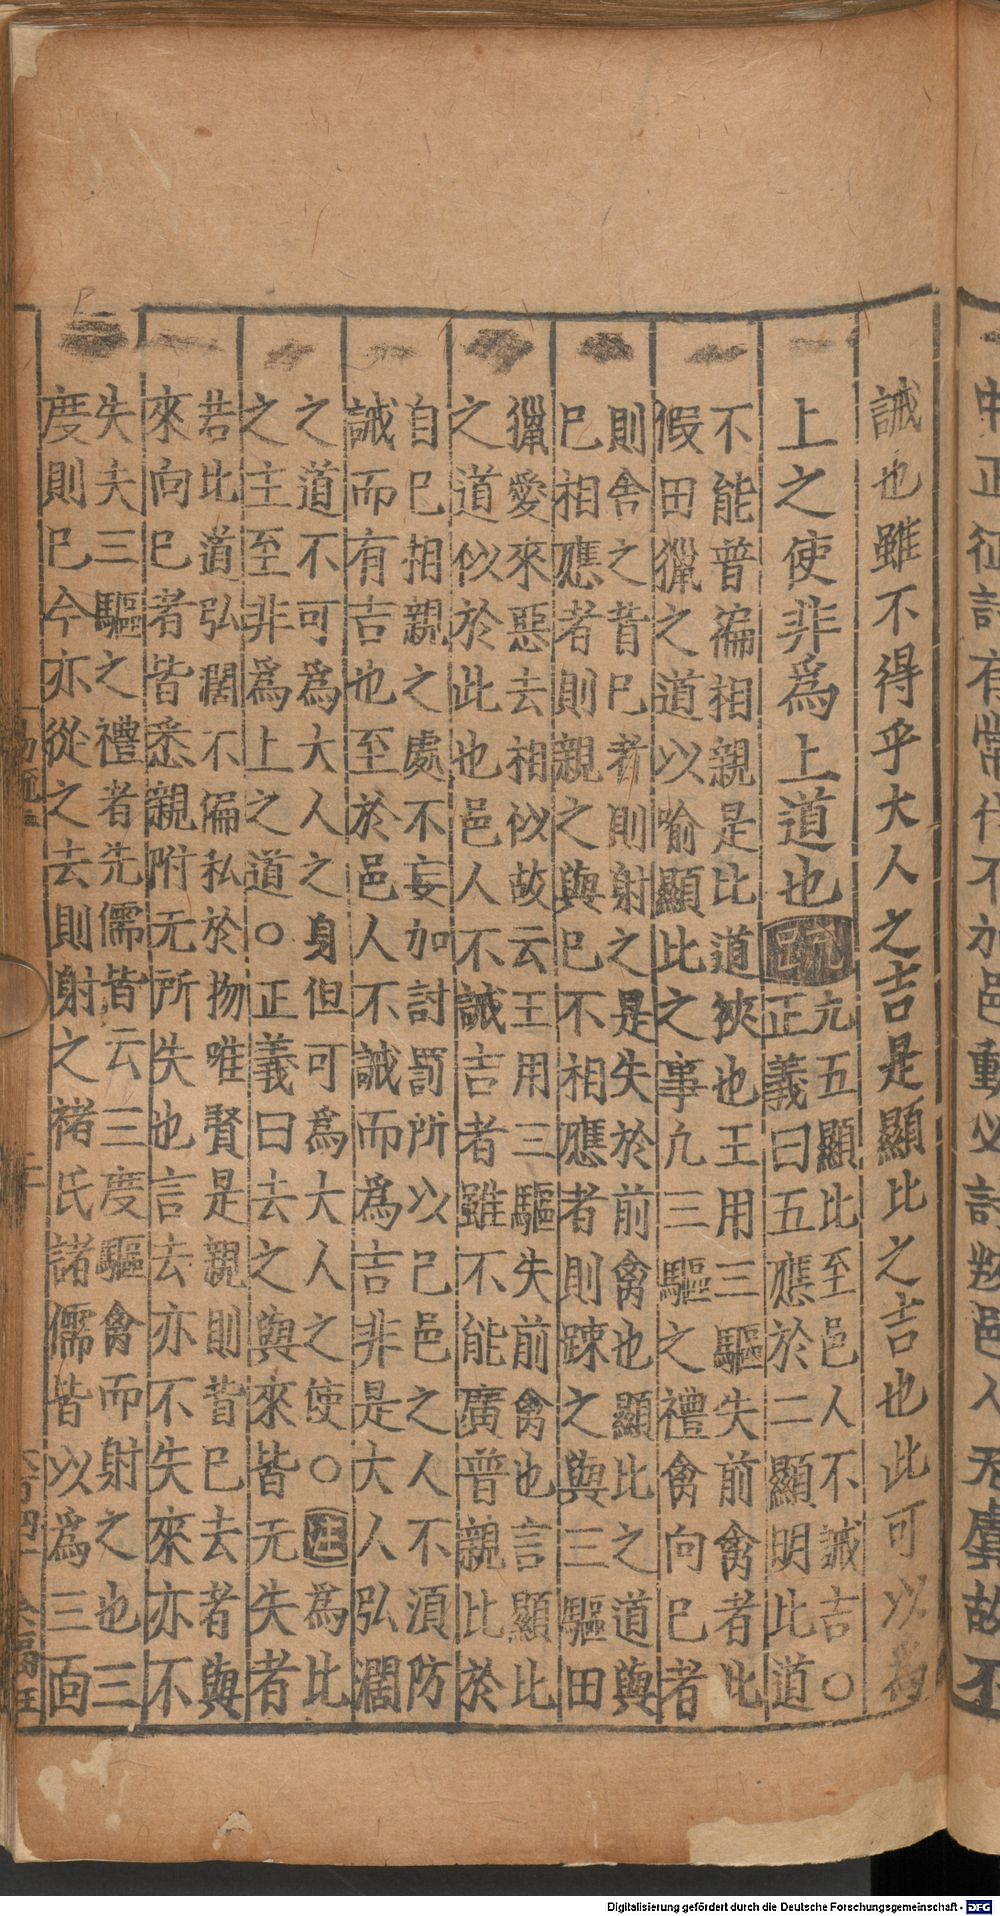 誡也雖不得乎大人之吉是顯比之吉也此可以為
上之使非為上道也
疏
九五顯比至邑人不誡吉○
正義曰五應於二顯明比道
不能普徧相親是比道狹也王用三驅失前禽者此
假田獵之道以喻顯比之事凢三驅之禮禽向已者
則舍之背已者則射之是失於前禽也顯比之道與
已相應者則親之與已不相應者則踈之與三驅田
獵愛來惡去相似故云王用三驅失前禽也言顯比
之道似於此也邑人不誡吉者雖不能廣普親比於
自已相親之處不妄加討罰所以己邑之人不湏防
誡而有吉也至於邑人不誡而為吉非是大人弘濶
之道不可為大人之身但可為大人之使○注為比
之主至非為上之道○正義曰去之與來皆无失者
若比道弘濶不偏私於物唯賢是親則背已去者與
來向已者皆悉親附无所失也言去亦不失來亦不
失夫三驅之禮者先儒皆云三度驅禽而射之也三
度則已今亦從之去則射之褚氏諸儒皆以為三面
中正征討有常伐不加邑動必討叛邑人无虞故不